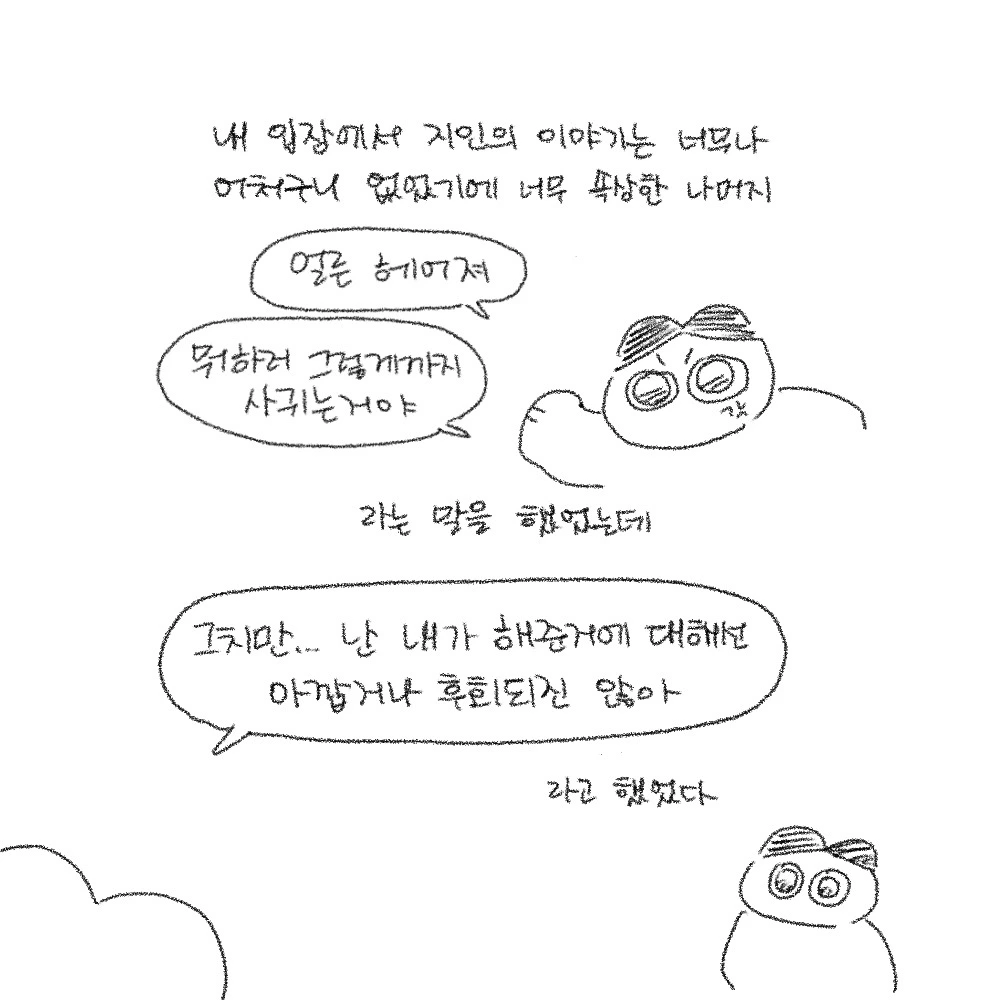 내 입장에서 지인의 이야기는 너무나
어처구니 없었기에 너무 속상한 나머지
얼른 헤어져
뭐하러 그렇게까지
사귀는거야
갓
라는 말을 했었는데
그치만... 난 내가 해준거에 대해선
아깝거나 후회되진 않아
라고 했었다